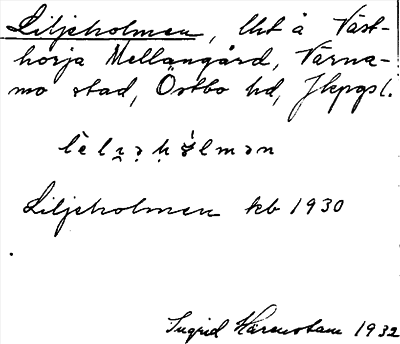 Liljeholmen, lht å Väst-
horja Mellangård, Värna-
mo stad, Östbo hd, Jkpgsl.
Liljeholmen kb 1930
Ingrid 1932